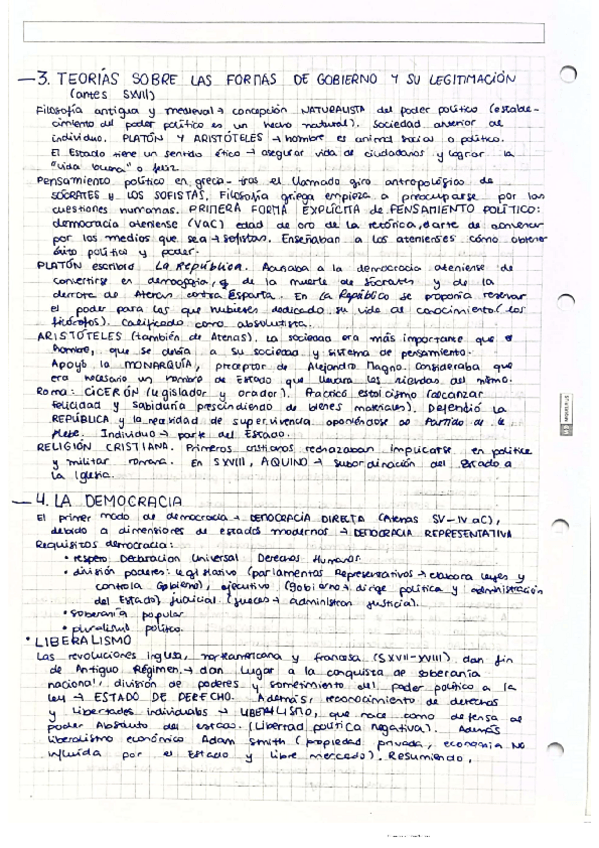 3. TEORÍAS SOBRE LAS FORMAS DE GOBIERNO Y SU LEGITIMACIÓN
(antes SXVII)
Filosofía antigua y medieval → concepción NATURALISTA del poder político (estable-
cimiento del poder político es un hecho natural). Sociedad anterior al
individuo. PLATÓN Y ARISTÓTELES → hombre es animal social o político.
El Estado tiene un sentido ético → asegurar vida de ciudadanos y lograr la
"vida buena" o feliz.
Pensamiento político en grecia - tras el llamado giro antropológico de
SÓCRATES y LOS SOFISTAS. Filosofía griega empieza a preocuparse por las
cuestiones humanas. PRIMERA FORMA EXPLÍCITA de PENSAMIENTO POLÍTICO:
democracia ateniense (VaC) edad de oro de la retórica, el arte de convencer
por los medios que sea → sofistas. Enseñaban a los atenienses cómo obtener
éxito político y poder.
PLATÓN escribió La República. Acusaba a la democracia ateniense de
convertirse en demagogia, de la muerte de Sócrates y de la
derrota de Atenas contra Esparta. En La República se proponía reservar
el poder para los que hubiesen dedicado su vida al conocimiento (los
filósofos). Calificado como absolutista.
ARISTÓTELES (también de Atenas). La sociedad era más importante que el
hombre, que se debía a su sociedad y sistema de pensamiento.
Apoyó la MONARQUÍA, preceptor de Alejandro Magno. Consideraba que
era necesario un hombre de Estado que llevara las riendas del mismo.
Roma: CICERÓN (legislador y orador). Practicó estoicismo (alcanzar
felicidad y sabiduría prescindiendo de bienes materiales). Defendió la
REPÚBLICA y la necesidad de supervivencia oponiéndose al Partido de la
plebe. Individuo → parte del Estado.
RELIGIÓN CRISTIANA. Primeros cristianos rechazaban implicarse en política
y militar romana. En SXVIII, AQUINO → subordinación del Estado a
la Iglesia.
4. LA DEMOCRACIA
El primer modo de democracia → DEMOCRACIA DIRECTA (Atenas SV-IV aC),
debido a dimensiones de estados modernos → DEMOCRACIA REPRESENTATIVA
Requisitos democracia:
• respeto Declaración Universal Derechos Humanos.
• división poderes: legislativo (parlamentos Representativos → elabora leyes y
controla Gobierno), ejecutivo (gobierno → dirige política y administración
del Estado) judicial (jueces → administran justicia).
• soberanía popular
• pluralismo político.
• LIBERALISMO
Las revoluciones inglesa, norteamericana y francesa (SXVII-XVIII) dan fin
de Antiguo Régimen. → dan lugar a la conquista de soberanía
nacional, división de poderes y sometimiento del poder político a la
ley → ESTADO DE DERECHO. Además, reconocimiento de derechos
y libertades individuales → LIBERALISMO, que nace como defensa al
poder Absoluto del estado. (Libertad política negativa). Además
liberalismo económico Adam Smith (propiedad privada, economía NO
influida por el Estado y libre mercado). Resumiendo,